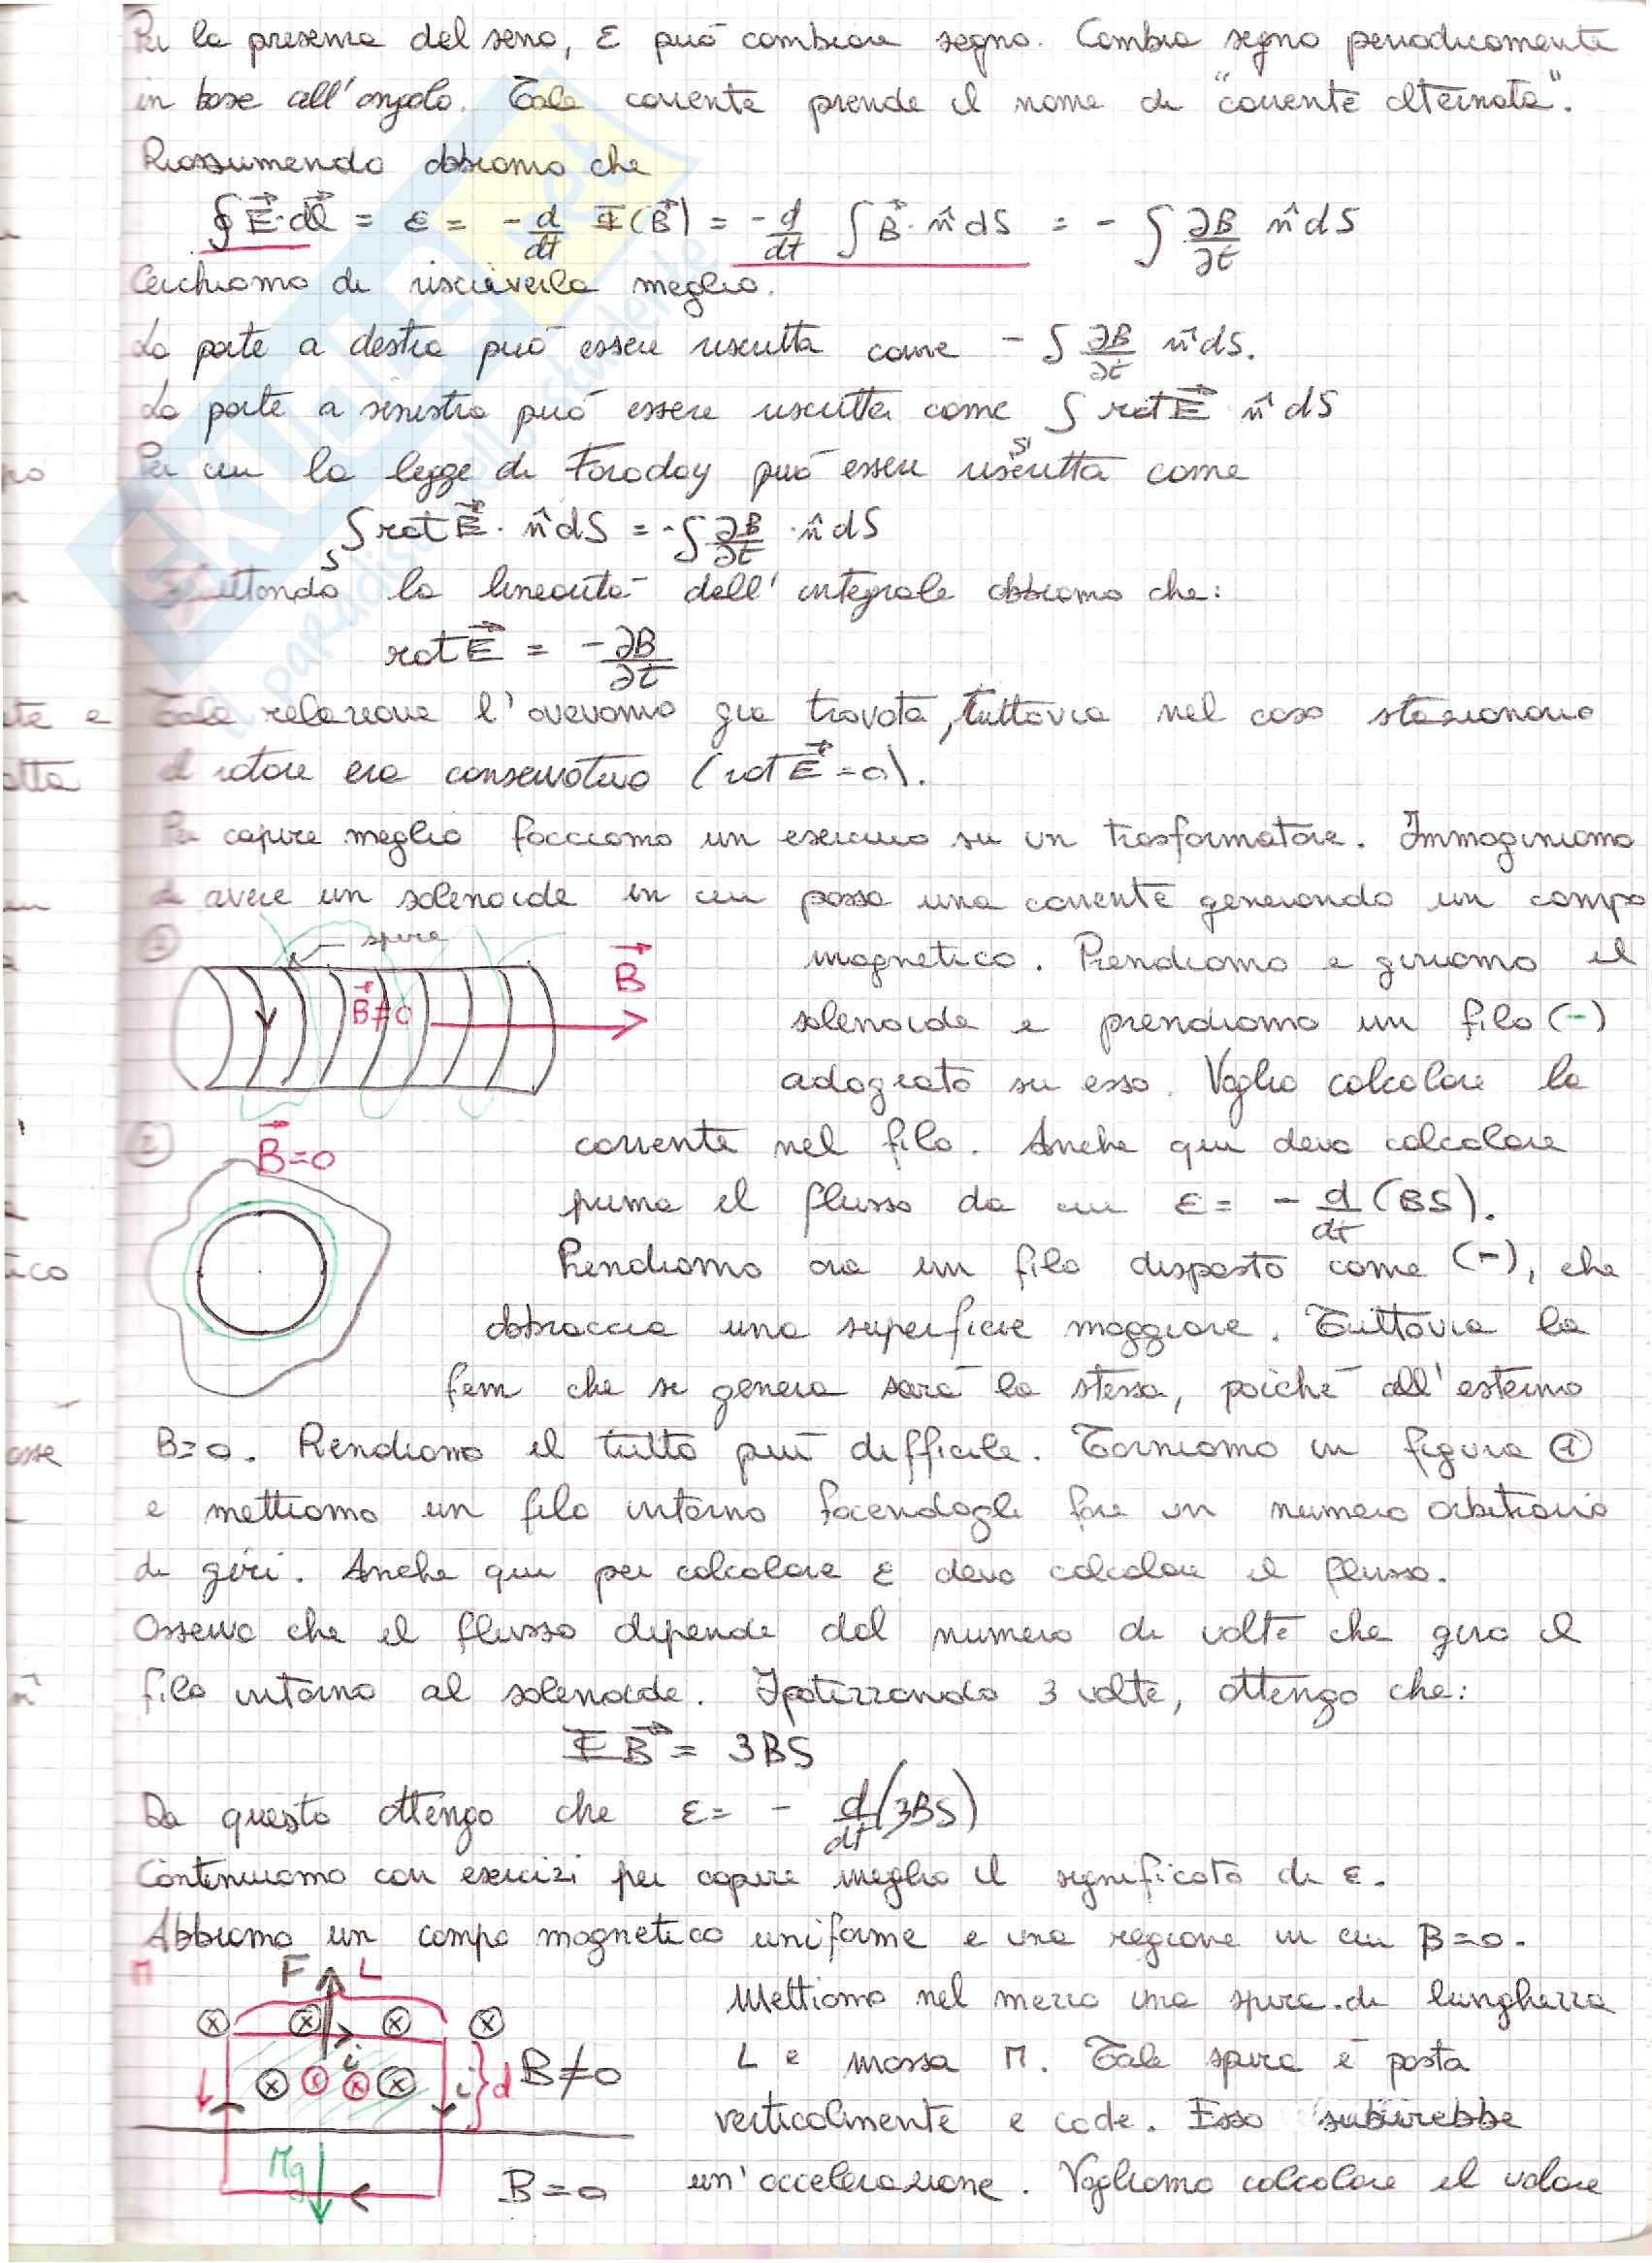 Per la presenza del seno, ε può cambiare segno. Cambia segno periodicamente
in base all'angolo. Tale corrente prende il nome di "corrente alternata".
Riassumendo abbiamo che
∮E⃗·dl⃗ = ε = -d/dt Φ(B⃗) = -d/dt ∫B⃗·n̂ dS = -∫ ∂B/∂t n̂ dS
Cerchiamo di riscriverla meglio.
La parte a destra può essere riscritta come -∫ ∂B/∂t n̂ dS.
La parte a sinistra può essere riscritta come ∫S rot E⃗ n̂ dS
Per cui la legge di Faraday può essere riscritta come
∫S rot E⃗ · n̂ dS = -∫ ∂B/∂t · n̂ dS
Sfruttando la linearità dell'integrale abbiamo che:
rot E⃗ = -∂B/∂t
Tale relazione l'avevamo già trovata, tuttavia nel caso stazionario
il rotore era conservativo (rot E⃗ = 0).
Per capire meglio facciamo un esercizio su un trasformatore. Immaginiamo
di avere un solenoide in cui passa una corrente generando un campo
① spire B⃗≠0 B⃗
magnetico. Prendiamo e giriamo il
solenoide e prendiamo un filo (-)
adagiato su esso. Voglio calcolare la
② B⃗=0
corrente nel filo. Anche qui devo calcolare
prima il flusso da cui ε = -d/dt (BS).
Prendiamo ora un filo disposto come (-), che
abbraccia una superficie maggiore. Tuttavia la
fem che si genera sarà la stessa, poiché all'esterno
B=0. Rendiamo il tutto più difficile. Torniamo in figura ①
e mettiamo un filo intorno facendogli fare un numero arbitrario
di giri. Anche qui per calcolare ε devo calcolare il flusso.
Osservo che il flusso dipende dal numero di volte che giro il
filo intorno al solenoide. Ipotizzando 3 volte, ottengo che:
ΦB⃗ = 3BS
Da questo ottengo che ε = -d/dt (3BS)
Continuiamo con esercizi per capire meglio il significato di ε.
Abbiamo un campo magnetico uniforme e una regione in cui B=0.
M F L
Mettiamo nel mezzo una spira di lunghezza
i i d B≠0
L e massa M. Tale spira è posta
verticalmente e cade. Esso subirebbe
Mg B=0
un'accelerazione. Vogliamo calcolare il valore
SKUOLA.net
il paradiso dello studente